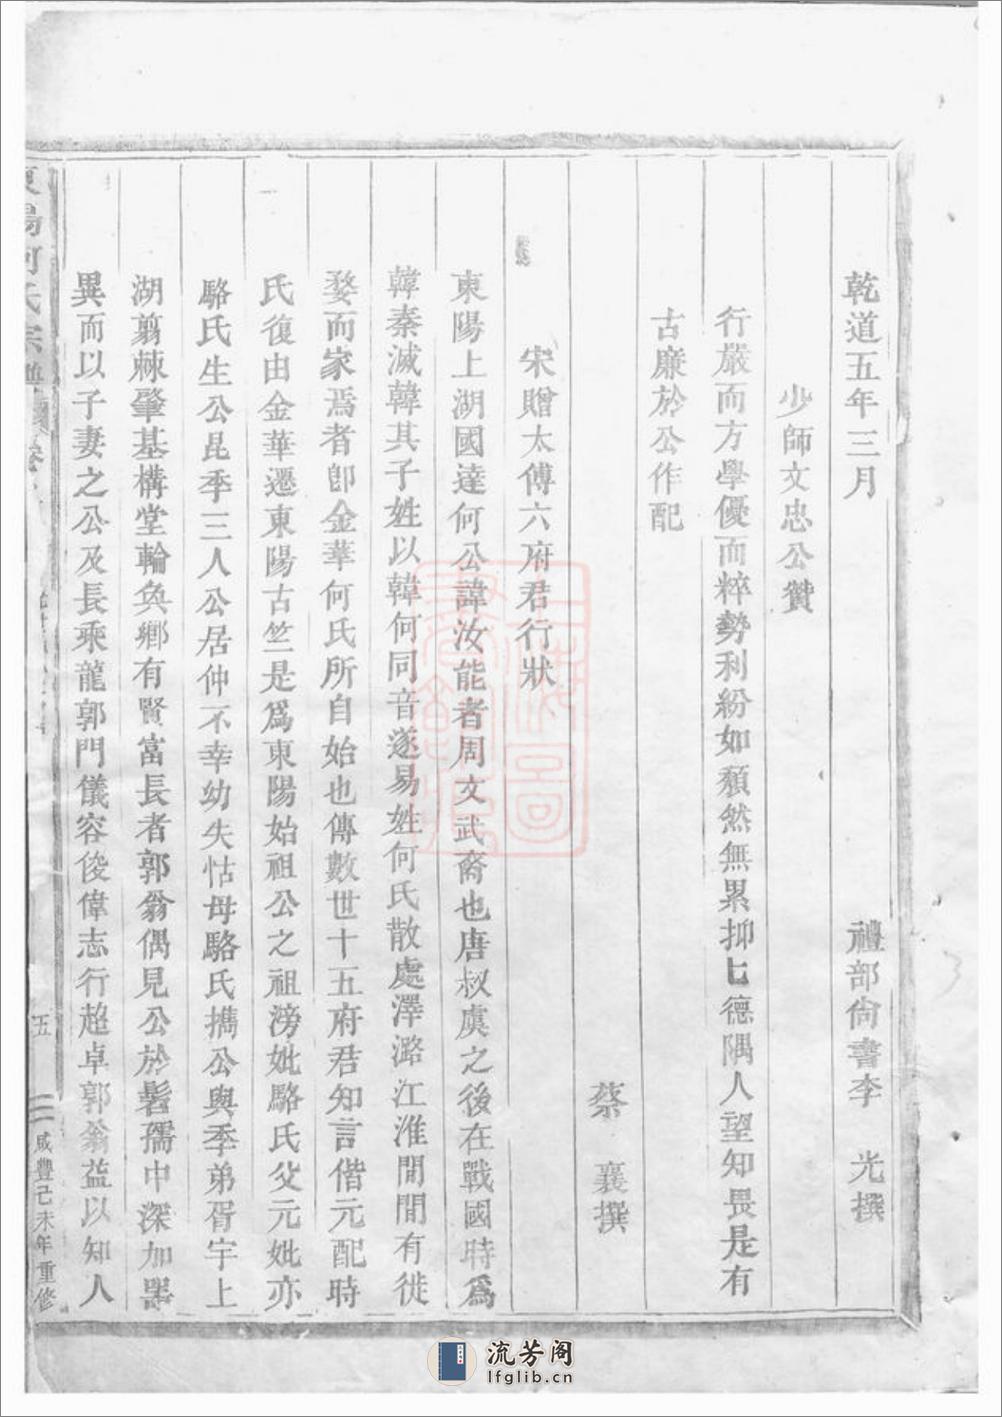 乾道五年三月　禮部尙書李　光撰
少師文忠公贊
行嚴而方學優而粹勢利紛如頽然無累抑匕德隅人望知畏是有
古廉於公作配
蔡　襄撰
宋贈太傅六府君行狀
東陽上湖國達何公諱汝能者周文武裔也唐叔虞之後在戰國時爲
韓秦滅韓其子姓以韓何同音遂易姓何氏散處澤潞江淮閒閒有徙
婺而家焉者卽金華何氏所自始也傳數世十五府君知言偕元配時
氏復由金華遷東陽古竺是爲東陽始祖公之祖滂妣駱氏父元妣亦
駱氏生公昆季三人公居仲不幸幼失怙母駱氏攜公與季弟胥宇上
湖翦棘肇基構堂輪奐鄉有賢富長者郭翁偶見公於髫孺中深加器
異而以子妻之公及長乘龍郭門儀容俊偉志行超卓郭翁益以知人
東陽何氏宗譜
五
咸豐己未年重修
流芳阁
lfglib.cn